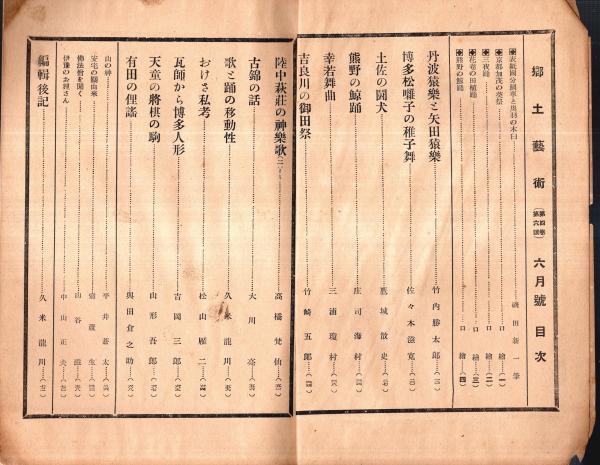 郷土藝術 (第四巻 第六號) 六月號 目次
磯田新一筆
◆京都加茂の葵祭……口繪……(一)
◆三夜踊……口繪……(二)
◆花巻の田植踊……口繪……(三)
◆熊野の鯨踊……口繪……(四)
丹波猿樂と矢田猿樂……竹内勝太郎
博多松囃子の稚子舞……佐々木滋寛
土佐の闘犬……鷹城散史
熊野の鯨踊……庄司海村
幸若舞曲……三浦瓊村
吉良川の御田祭……竹崎五郎
陸中萩荘の神樂歌……高橋梵仙
古錦の話……大川亮
歌と踊の移動性……久米龍川
おけさ私考……松山雁二
瓦師から博多人形……吉岡三郎
天童の將棋の駒……山形吾郎
有田の俚謠……與田倉之助
山の神……平井蒼太
安宅の關由來
佛法僧を聞く……山谷滋
伊豫のお鯉さん……中山正夫
編輯後記……久米龍川